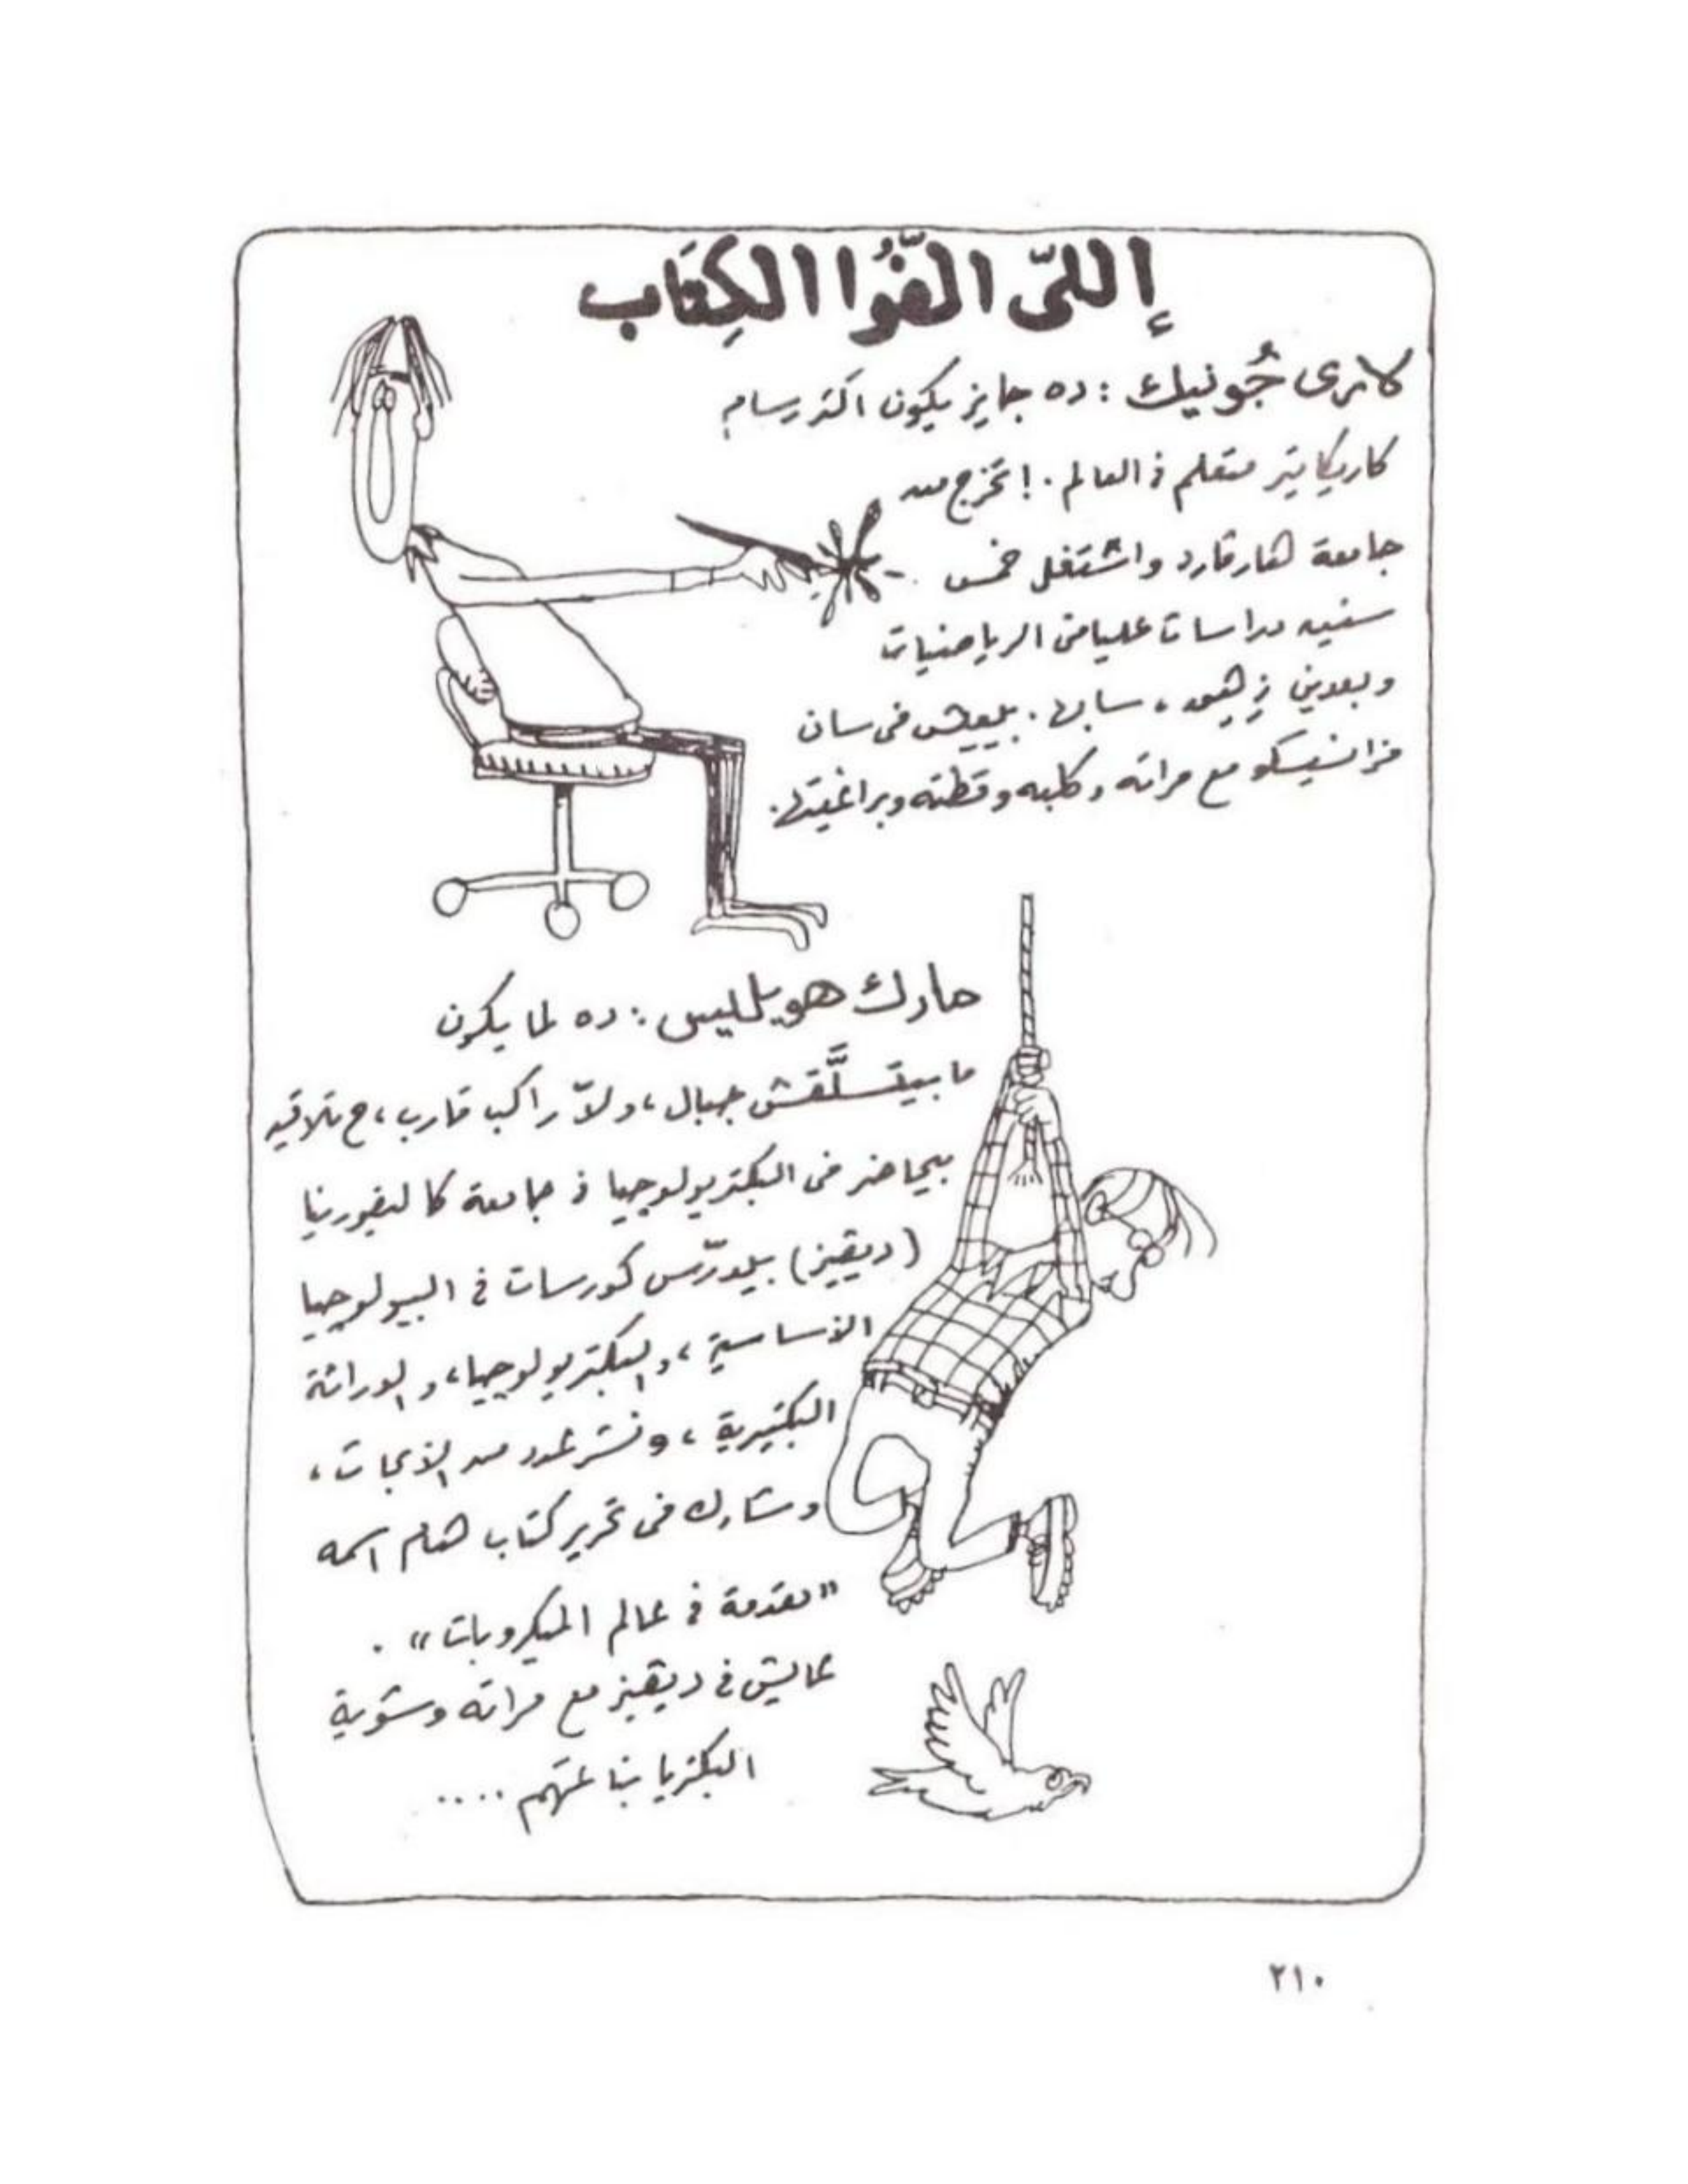 إللّى الفّوُا الكِتَاب
لارى جُونيك : ده جايز يكون اكتر رسام
كاريكاتير متعلم فى العالم . ! تخرج من
جامعة هارڤارد واشتغل خمس
سنين دراسات عليا فى الرياضيات
وبعدين زهق ، سابها . بيعيش فى سان
فرانسيسكو مع مراته وكلبه وقطته وبراغيتها .
مارك هويلليس : ده لما يكون
ما بيتسلَّقش جبال ، ولاّ راكب قارب ، ح تلاقيه
بيحاضر فى البكتريولوجيا فى جامعة كاليفورنيا
(ديڤيز) بيدرّس كورسات فى البيولوجيا
الأساسية ، والبكتريولوجيا ، والوراثة
البكتيرية ، ونشر عدد من الأبحاث ،
وشارك فى تحرير كتاب هام اسمه
"مقدمة فى عالم الميكروبات" .
عايش فى ديڤيز مع مراته وشوية
البكتريا بتاعتهم ....
٢١٠